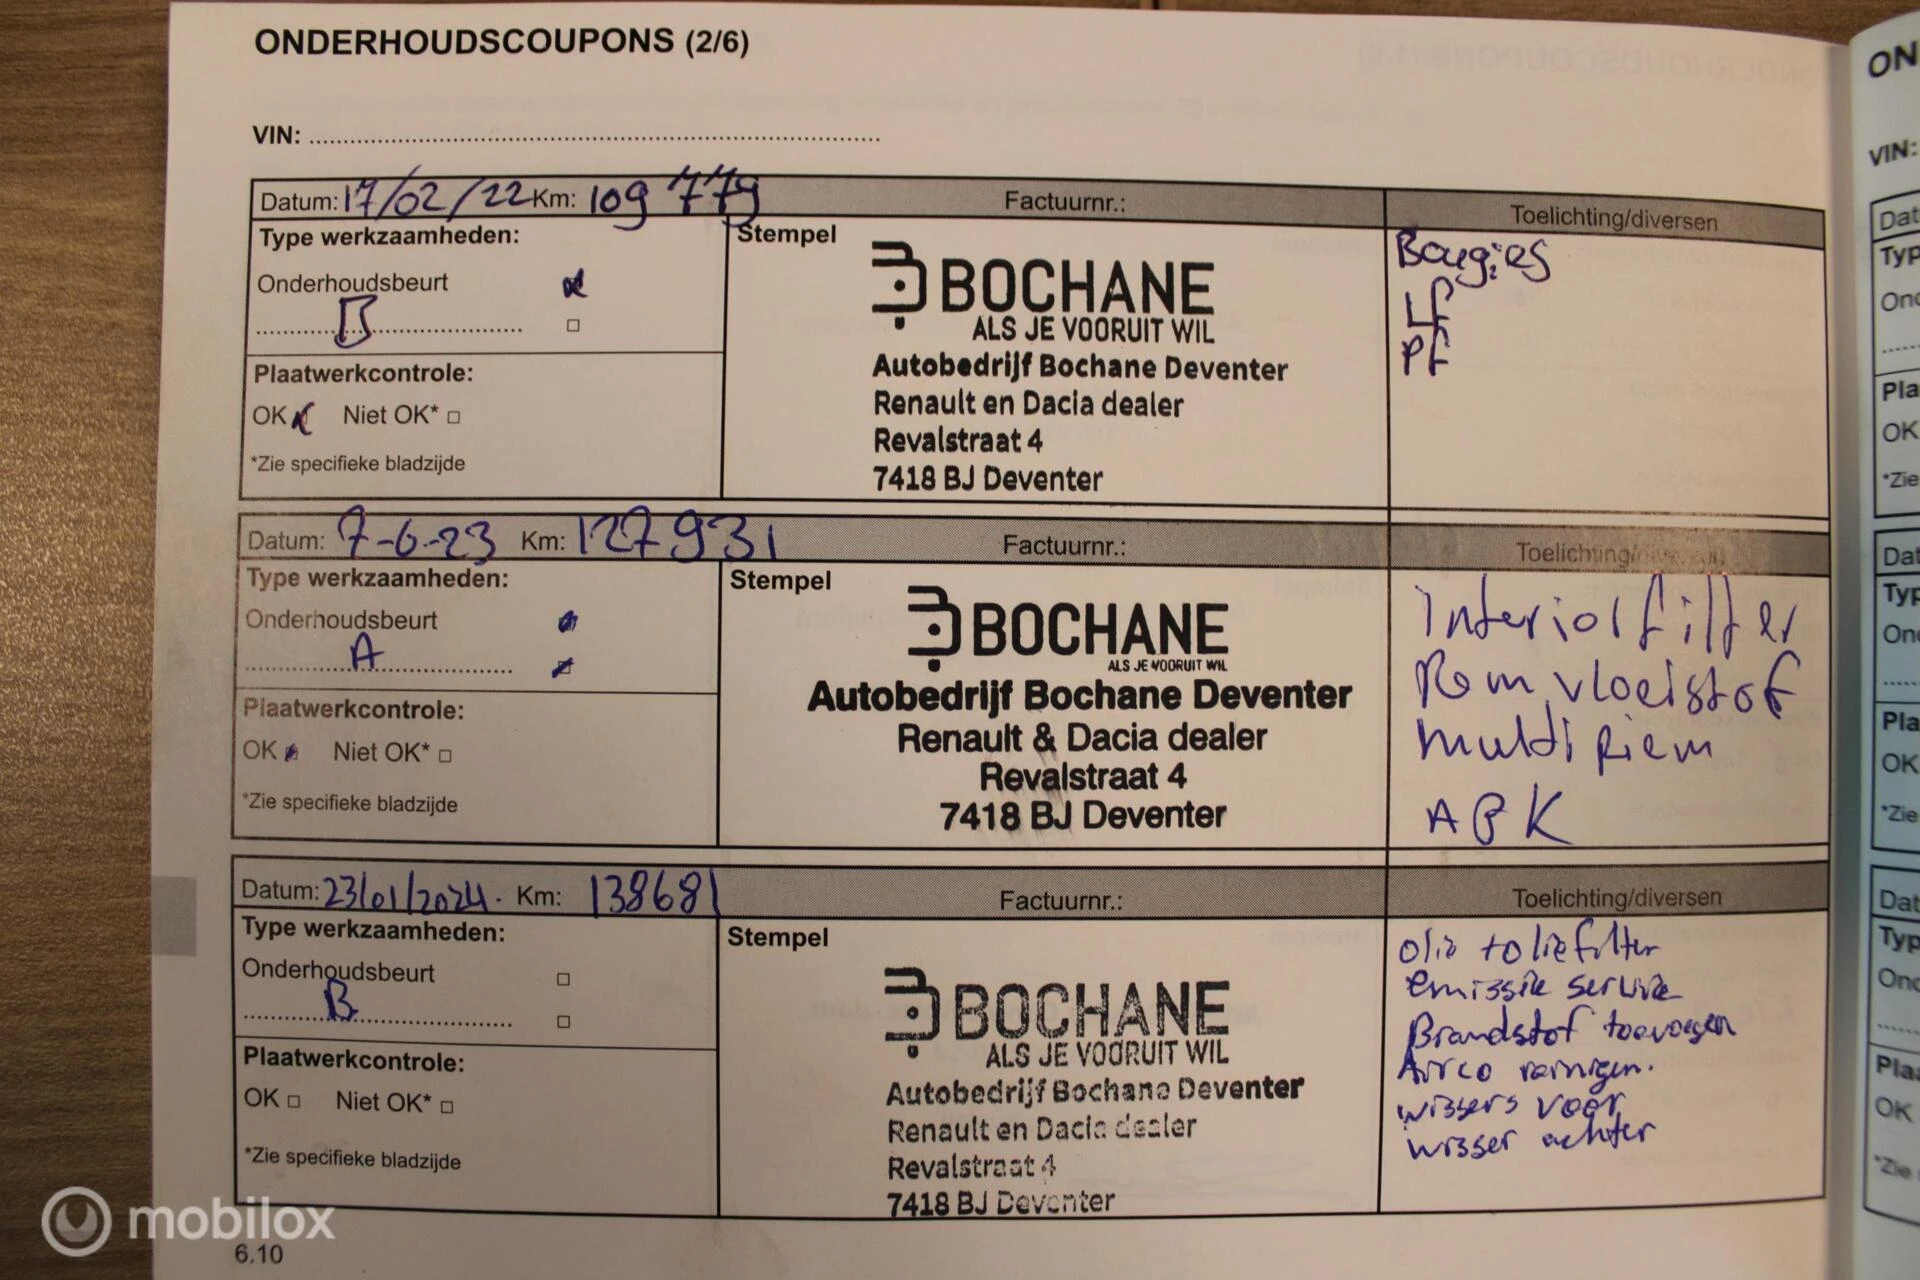 ONDERHOUDSCOUPONS (2/6)
VIN:
Datum: 17/02/22 Km: 109 779 Factuurnr.: Toelichting/diversen
Type werkzaamheden:
Onderhoudsbeurt
B
Plaatwerkcontrole:
OK Niet OK*
*Zie specifieke bladzijde
Stempel
BOCHANE
ALS JE VOORUIT WIL
Autobedrijf Bochane Deventer
Renault en Dacia dealer
Revalstraat 4
7418 BJ Deventer
Bougies
LF
PF
Datum: 7-6-23 Km: 127931 Factuurnr.: Toelichting/diversen
Type werkzaamheden:
Onderhoudsbeurt
A
Plaatwerkcontrole:
OK Niet OK*
*Zie specifieke bladzijde
Stempel
BOCHANE
ALS JE VOORUIT WIL
Autobedrijf Bochane Deventer
Renault & Dacia dealer
Revalstraat 4
7418 BJ Deventer
Interiorfilter
Remvloeistof
multi riem
APK
Datum: 23/01/2024. Km: 138681 Factuurnr.: Toelichting/diversen
Type werkzaamheden:
Onderhoudsbeurt
B
Plaatwerkcontrole:
OK Niet OK*
*Zie specifieke bladzijde
Stempel
BOCHANE
ALS JE VOORUIT WIL
Autobedrijf Bochane Deventer
Renault en Dacia dealer
Revalstraat 4
7418 BJ Deventer
olie + oliefilter
emissie servise
Brandstof toevoegen
Airco reinigen.
wissers voor
wisser achter
6.10
mobilox
ON
VIN:
Dat
Typ
Ond
Pla
OK
*Zie
Dat
Typ
Ond
Pla
OK
*Zie
Dat
Typ
Ond
Plaa
OK
*Zie